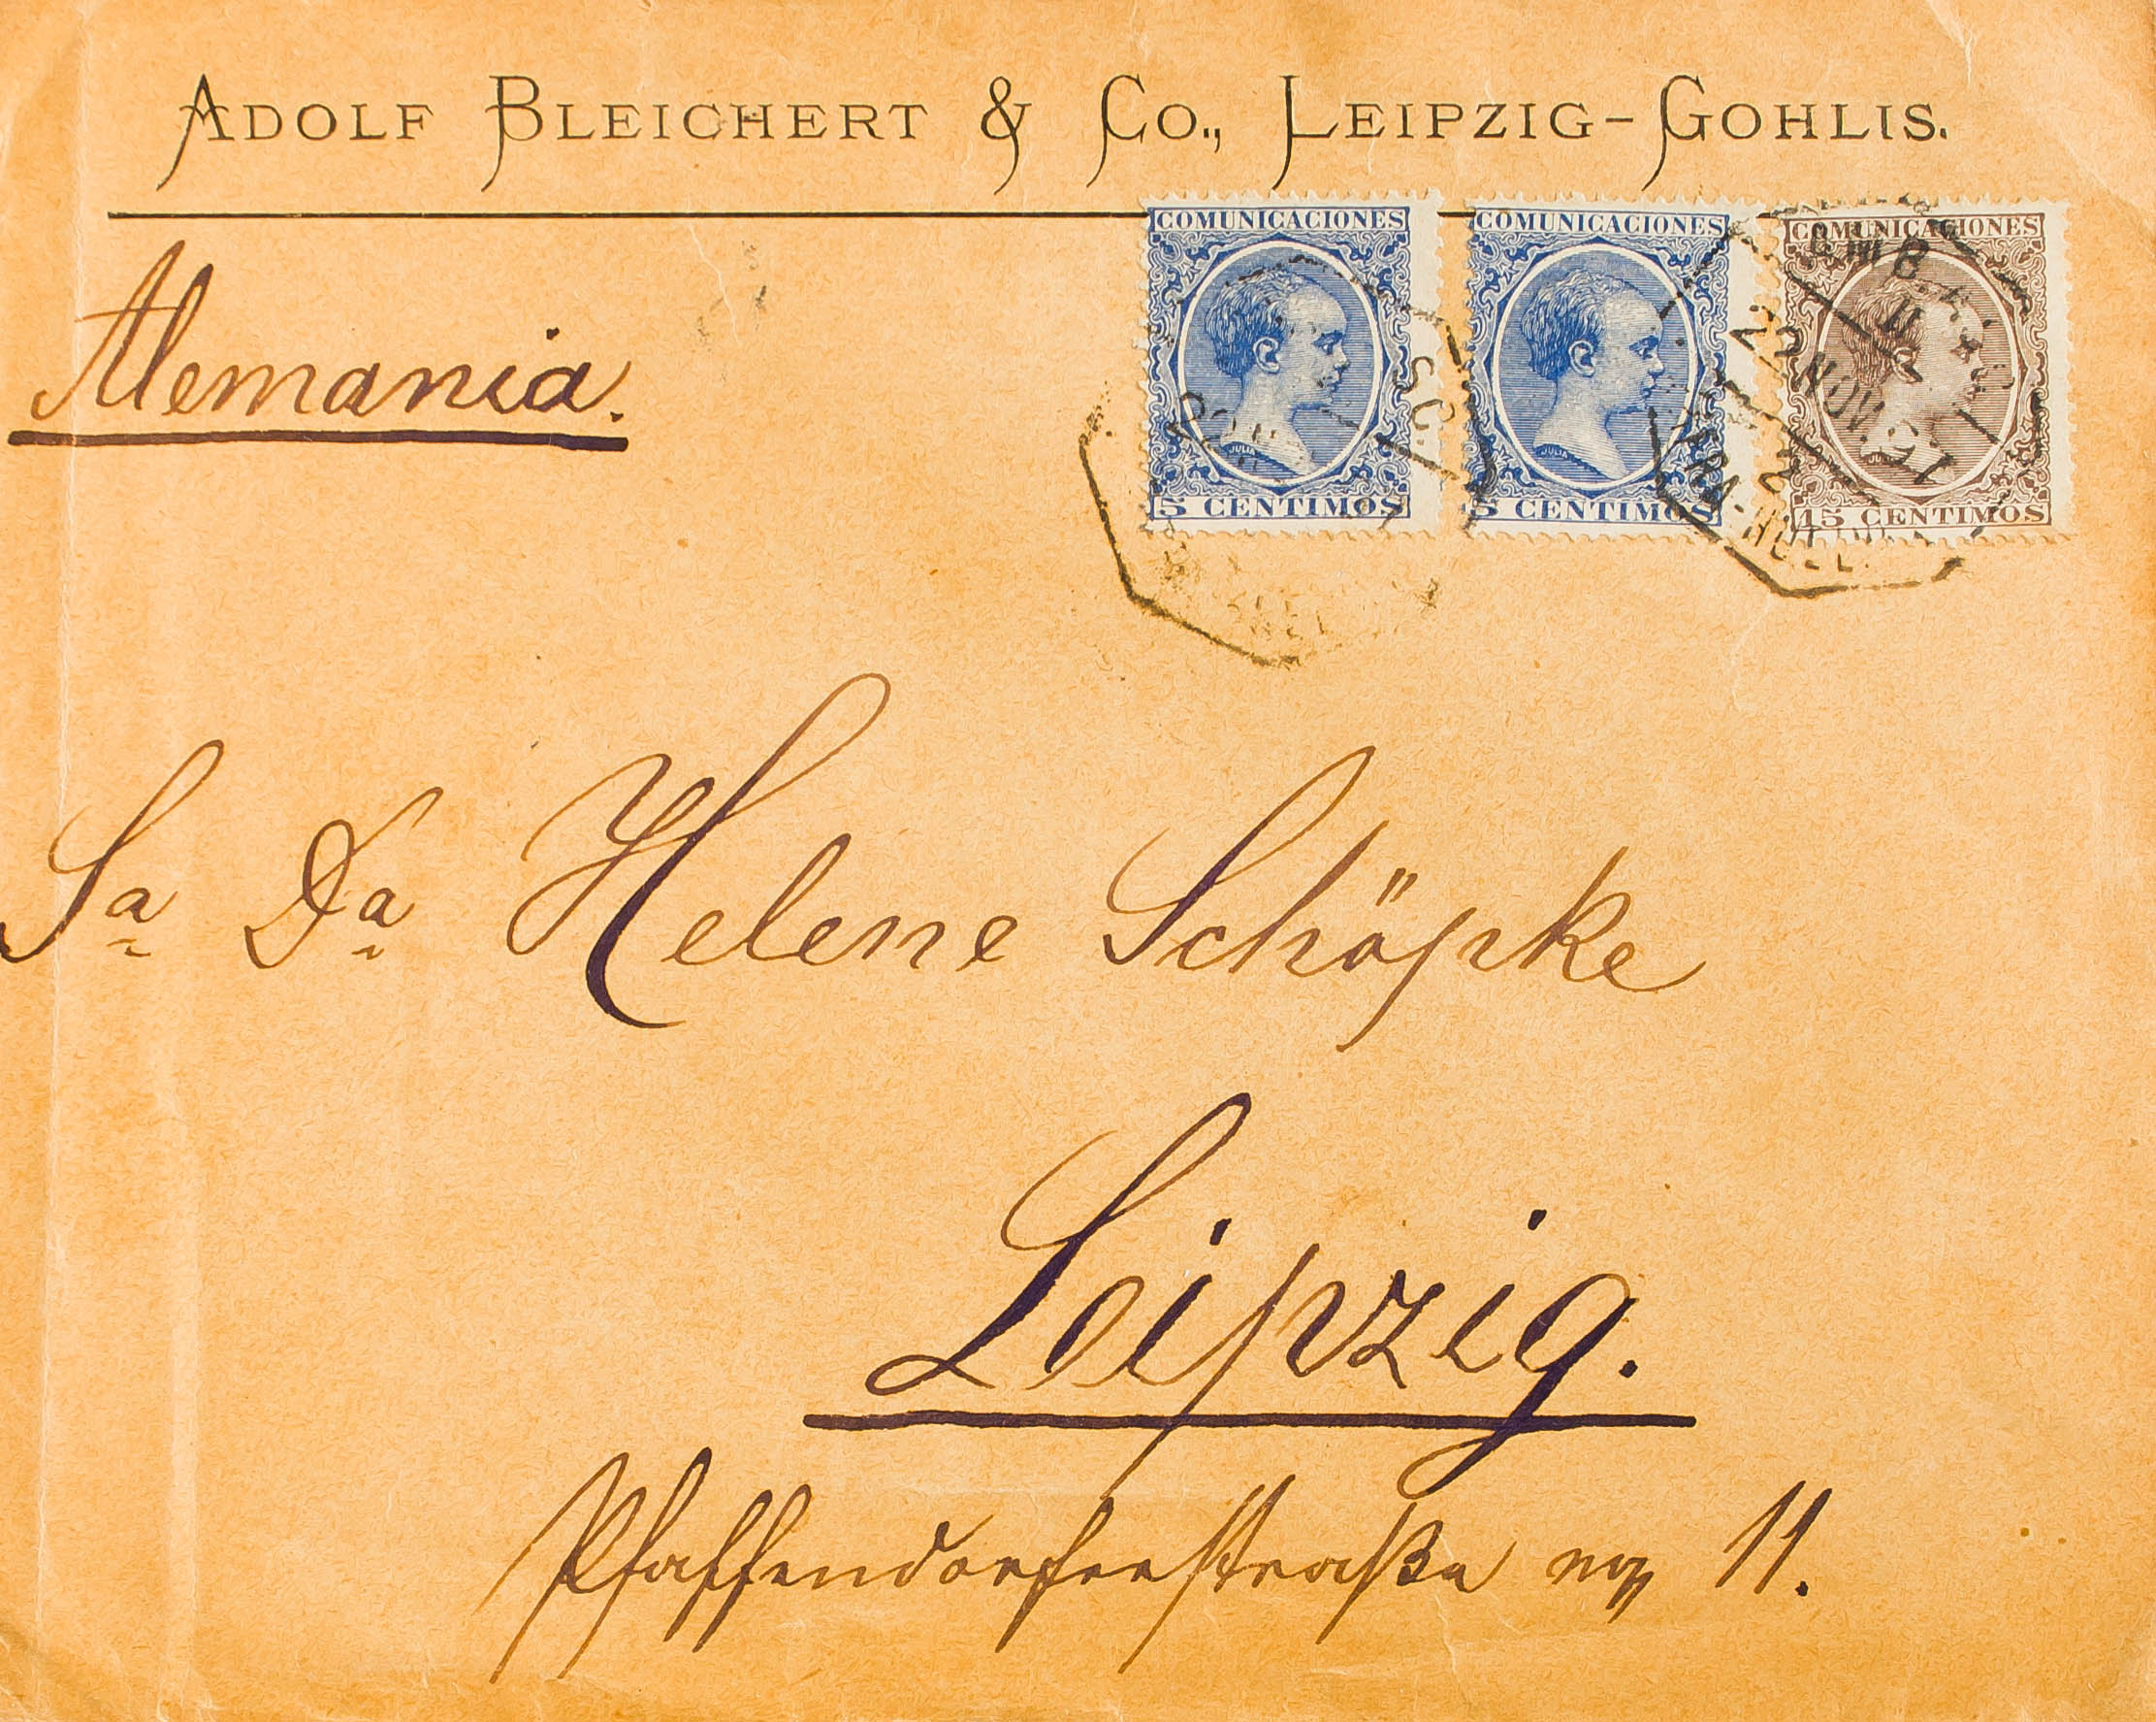 ADOLF BLEICHERT & CO., LEIPZIG-GOHLIS.
COMUNICACIONES
JULIA
5 CENTIMOS
COMUNICACIONES
JULIA
5 CENTIMOS
COMUNICACIONES
15 CENTIMOS
22 NOV.
Alemania.
Sa Da Helene Schöpke
Leipzig.
Pfaffendorferstraße 11.